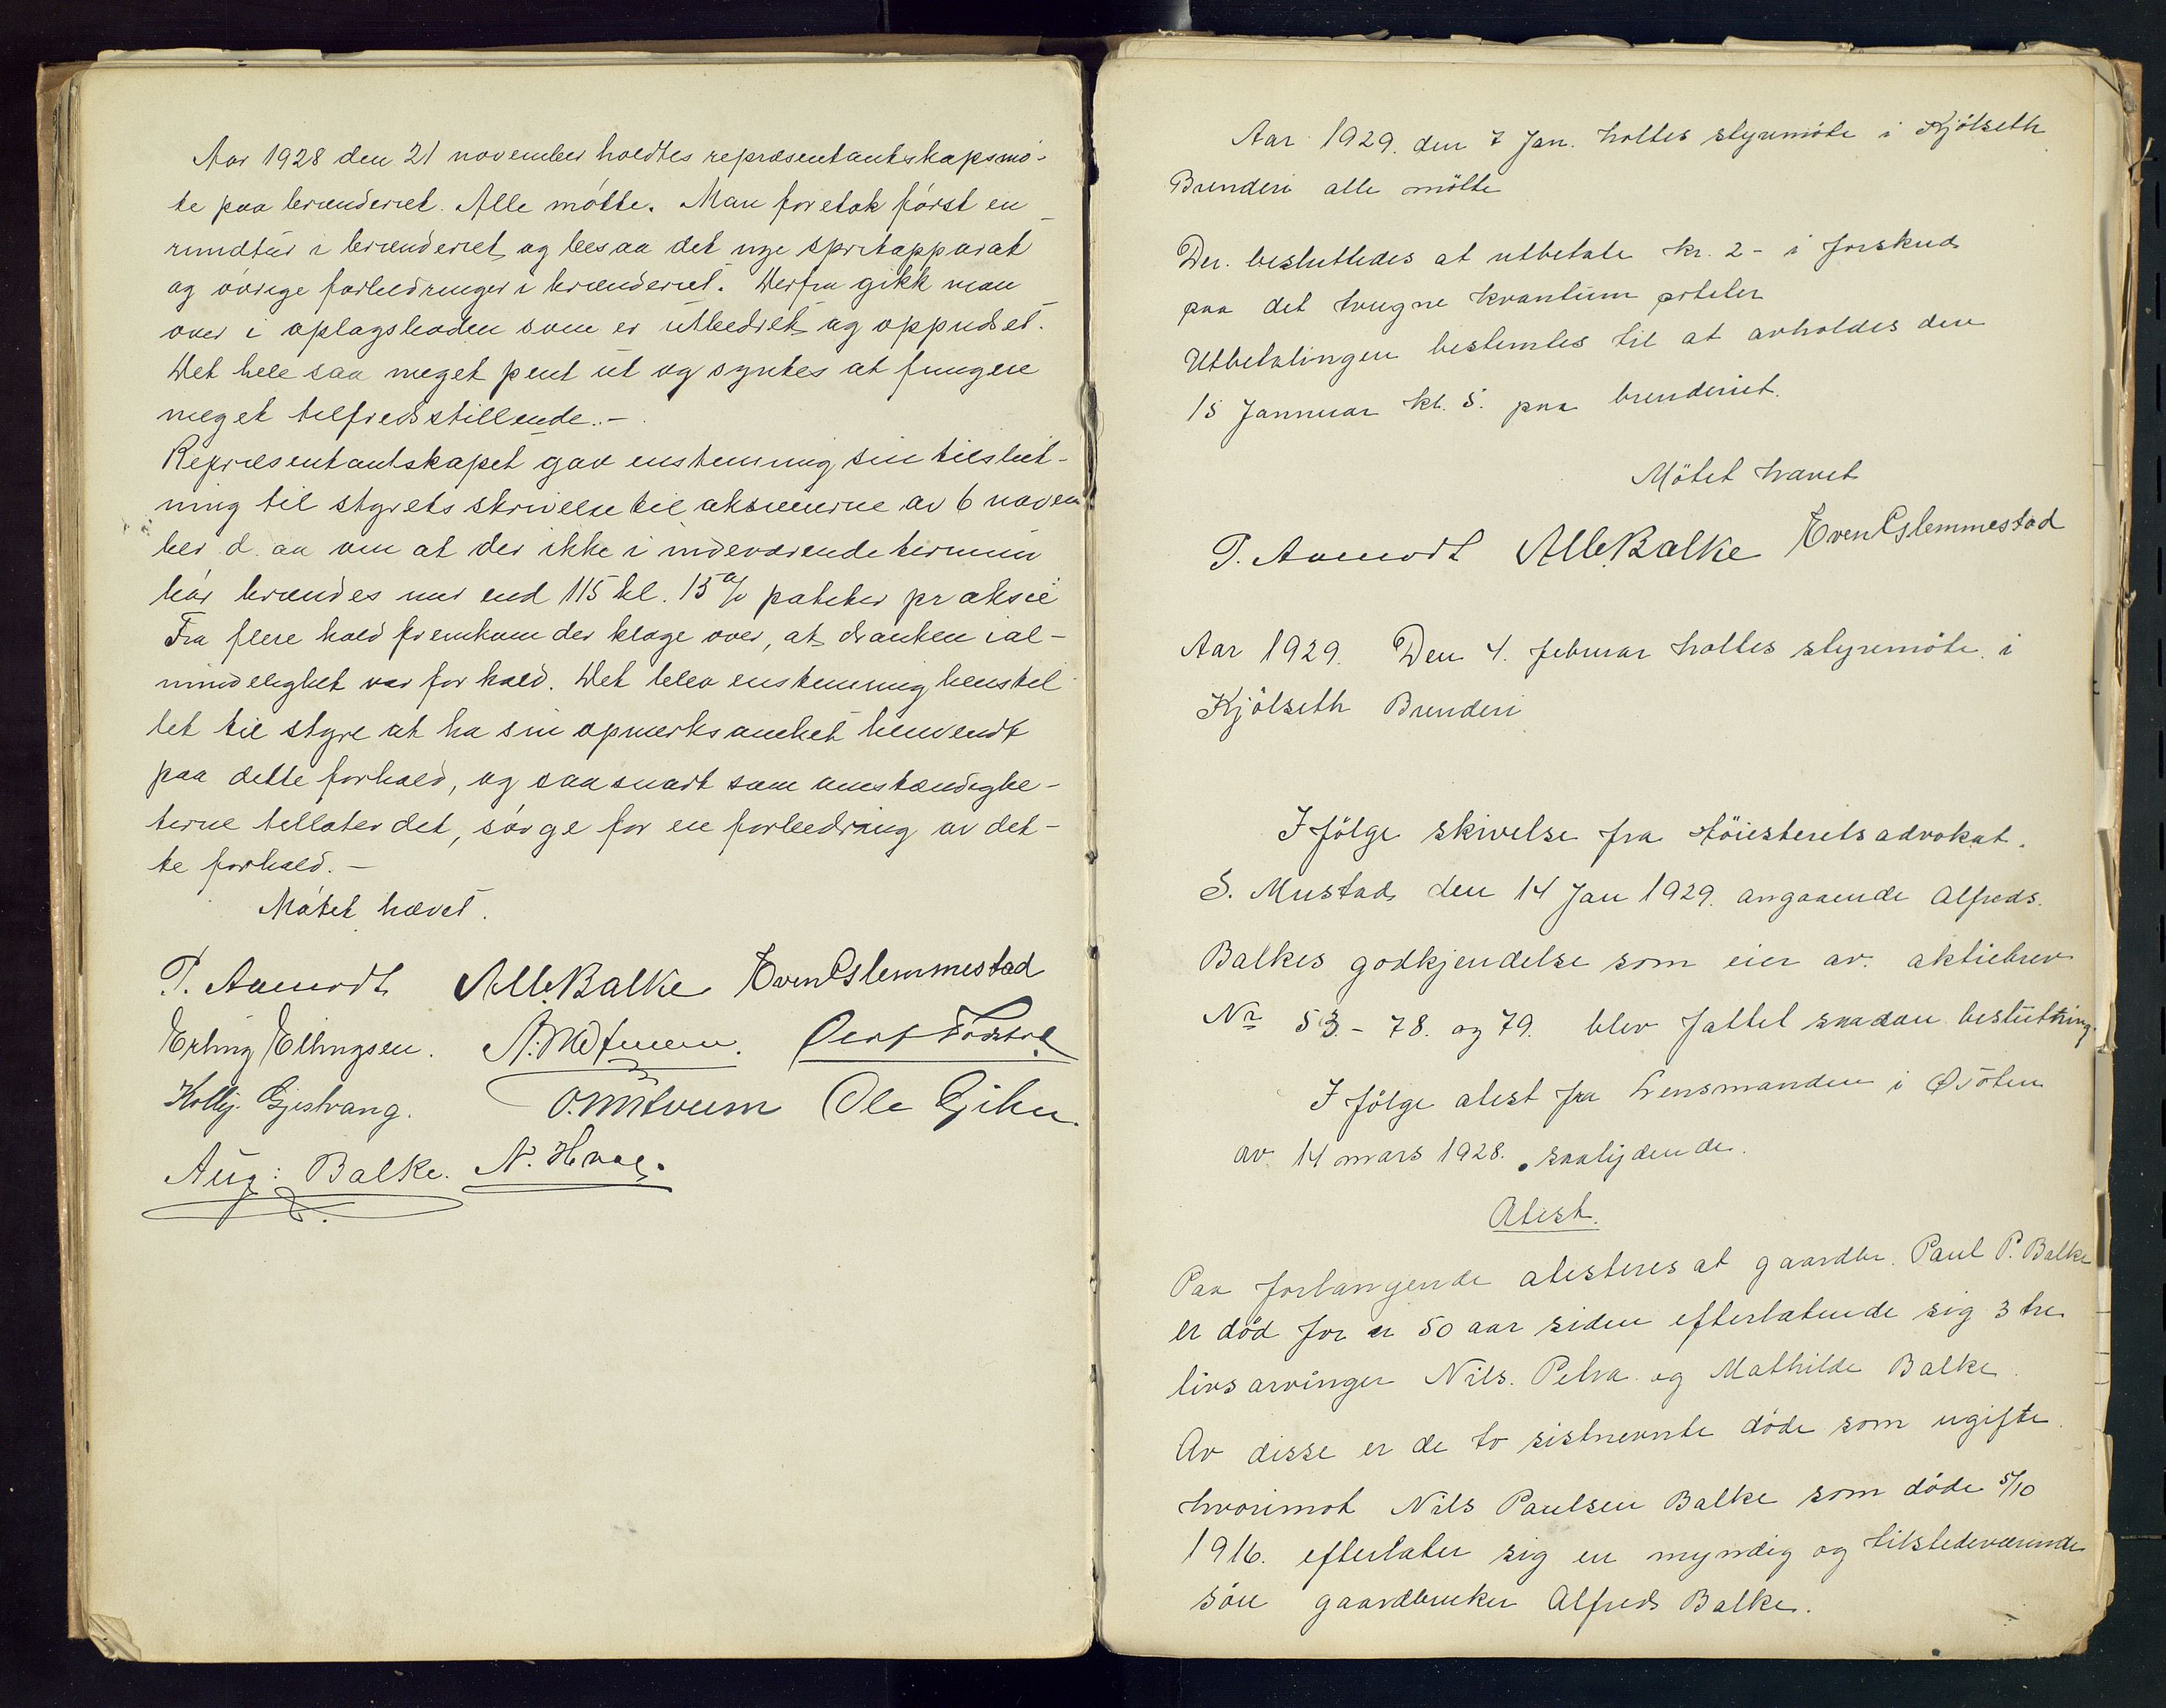 Aar 1928 den 21 november holdtes repræsentantskapsmö-
te paa brænderiet. Alle mötte. Man foretok först en
rundtur i brænderiet og besaa det nye spritapparat
og övrige forbedringer i brænderiet. Derfra gikk man
over i oplagsboden som er utbedret og oppudset.
Det hele saa meget pent ut og syntes at fungere
meget tilfredsstillende.-
Repræsentantskapet gav enstemmig sin tilslut-
ning til styrets skrivelse til aksieeierne av 6 novem
ber d. aa om at der ikke i indeværende termin
bör brændes mer end 115 hl. 15 % poteter pr aksie
Fra flere hold fremkom der klage over, at dranken i al-
mindelighet var for kald. Det blev enstemmig henstil
let til styre at ha sin opmerksomhet henvendt
paa dette forhold, og saasnart som omstændighe-
terne tillater det, sörge for en forbedring av det-
te forhold.-
Mötet hævet.
P. Aamodt Alb. Balke Even Eslemmestad
Erling Ellingsen.
Kolbj. Gjestvang. Ole Gihle.
Aug: Balke. N. Hveem.
Aar 1929. den 7 Jan. holtes styremöte i Kjölseth
Brenderi alle mötte
Der. besluttedes at utbetale kr. 2- i forskud
paa det tvugne kvantum poteter
Utbetalingen bestemtes til at avholdes den
15 Jannuar kl. 5. paa brenderiet.
Mötet hævet
P. Aamodt Alb. Balke Even Eslemmestad
Aar 1929. Den 4. februar holtes styremöte i
Kjölseth Brenderi
I fölge skivelse fra Höiesteretsadvokat.
S. Mustad den 14 Jan 1929. angaaende Alfreds.
Balkes godkjendelse som eier av. aktiebrev
Nr 53- 78. og 79. blev fattet saadan beslutning.
I fölge atest fra Lensmanden i Ø Töten
av 14 mars 1928. saalydende.
Atest.
Paa forlangende atesteres at gaardbr. Paul P. Balke
er död for er 50 aar siden efterlatende sig 3 tre
livsarvinger Nils. Petra og Mathilde Balke.
Av disse er de to sistnevnte döde som ugifte.
hvorimot Nils Paulsen Balke som döde 5/10
1916. efterlater sig en myndig og tilstedeværende
sön gaardbruker Alfred Balke.